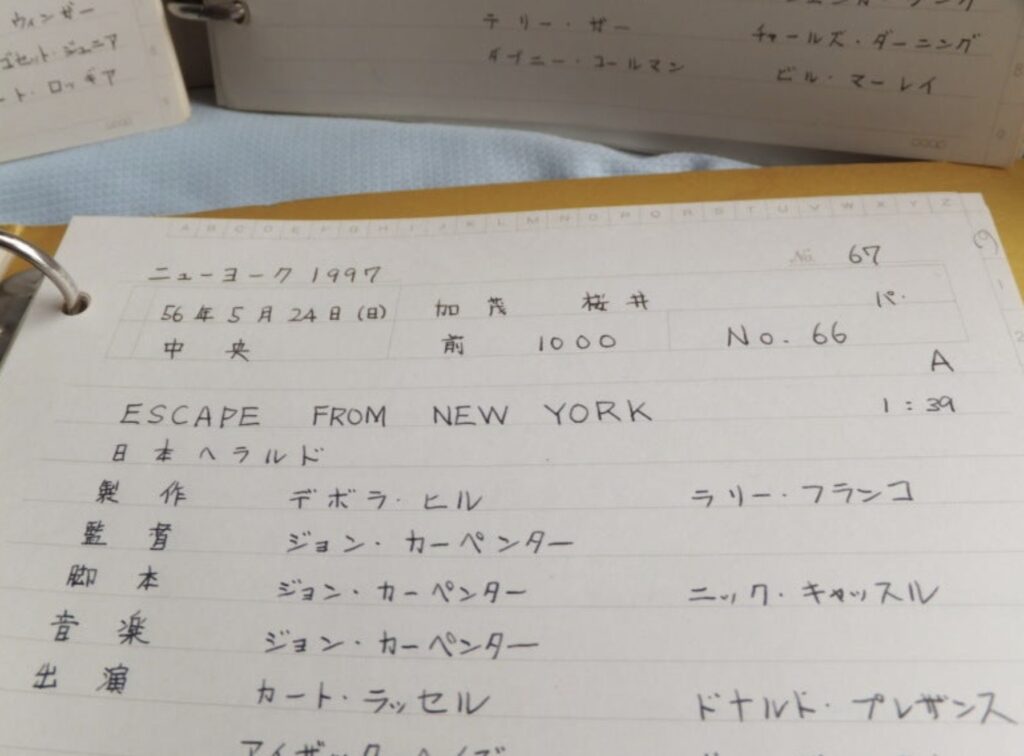 ウィンザー
ゴセット・ジュニア
ート・ロッギア
テリー・ガー
ダブニー・コールマン
チャールズ・ダーニング
ビル・マーレイ
A B C D E F G H I J K L M N O P Q R S T U V W X Y Z
No. 67
ニューヨーク 1997
56年5月24日(日) 加茂 桜井 パ.
中央 前 1000 No. 66
A
ESCAPE FROM NEW YORK 1:39
日本ヘラルド
製作 デボラ・ヒル ラリー・フランコ
監督 ジョン・カーペンター
脚本 ジョン・カーペンター ニック・キャッスル
音楽 ジョン・カーペンター
出演 カート・ラッセル ドナルド・プレザンス
アイザック・ヘイズ